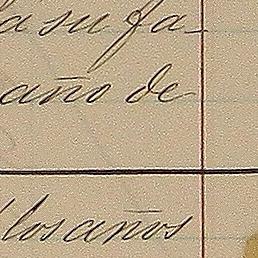 a su fa-
año de
los años